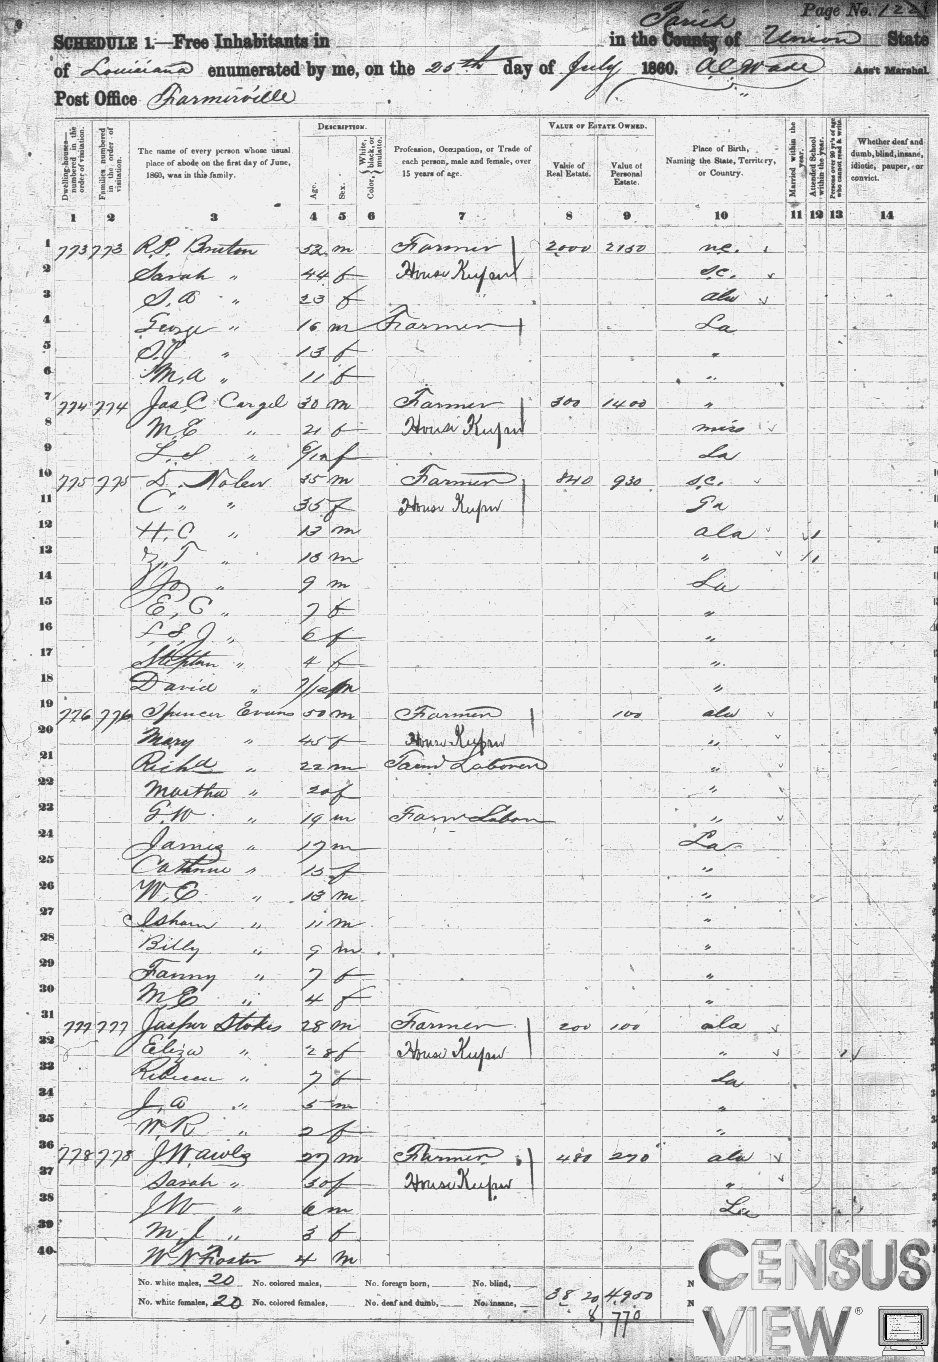 Page No. 122
SCHEDULE 1.—Free Inhabitants in in the County Parish of Union State
of Louisiana enumerated by me, on the 25th day of July 1860. A C Wade Ass't Marshal.
Post Office Farmerville
Dwelling-houses—numbered in the order of visitation. Families numbered in the order of visitation. The name of every person whose usual place of abode on the first day of June, 1860, was in this family. DESCRIPTION. Age. Sex. Color, White, black, or mulatto. Profession, Occupation, or Trade of each person, male and female, over 15 years of age. VALUE OF ESTATE OWNED. Value of Real Estate. Value of Personal Estate. Place of Birth, Naming the State, Territory, or Country. Married within the year. Attended School within the year. Persons over 20 y'rs of age who cannot read & write. Whether deaf and dumb, blind, insane, idiotic, pauper, or convict.
1 2 3 4 5 6 7 8 9 10 11 12 13 14
1 773 773 R.P. Bruton 52 m Farmer 2000 2150 nc.
2 Sarah " 44 f House Keeper sc.
3 S. A " 23 f ala
4 George " 16 m Farmer La
5 " 13 f "
6 M, A " 11 f "
7 774 774 Jas, C Cargel 30 m Farmer 300 1400 "
8 M. E " 21 f House Keeper miss
9 L. S. " 6/12 f La
10 775 775 D. Nolen 35 m Farmer 840 930 s.c.
11 C " " 35 f House Keeper Ga
12 H. C " 13 m ala 1
13 Z, T " 13 m " 1
14 Jo " 9 m La
15 E, C " 7 f "
16 L, S, J " 6 f "
17 Stephen " 4 f "
18 David " 7/12 m "
19 776 776 Spencer Evans 50 m Farmer 100 ala
20 Mary " 45 f House Keeper "
21 Richd " 22 m Farm Laborer "
22 Martha " 20 f "
23 G. W. " 19 m Farm Labor "
24 James " 17 m La
25 Catherine " 15 f "
26 W. E " 13 m "
27 Isham " 11 m "
28 Billy " 9 m "
29 Fanny " 7 f "
30 M, E " 4 f "
31 777 777 Jasper Stokes 28 m Farmer 200 100 ala
32 Eliza " 28 f House Keeper " 1
33 Rebecca " 7 f La
34 J. A " 5 m "
35 W R " 2 f "
36 778 778 J. W. 27 m Farmer 480 270 ala
37 Sarah " 30 f House Keeper "
38 J W " 6 m La
39 M, J " 3 f
40 W N Foster 4 m
No. white males, 20 No. colored males, No. foreign born, No. blind,
No. white females, 20 No. colored females, No. deaf and dumb, No. insane, 38 20 4950
8 770
CENSUS
VIEW ®